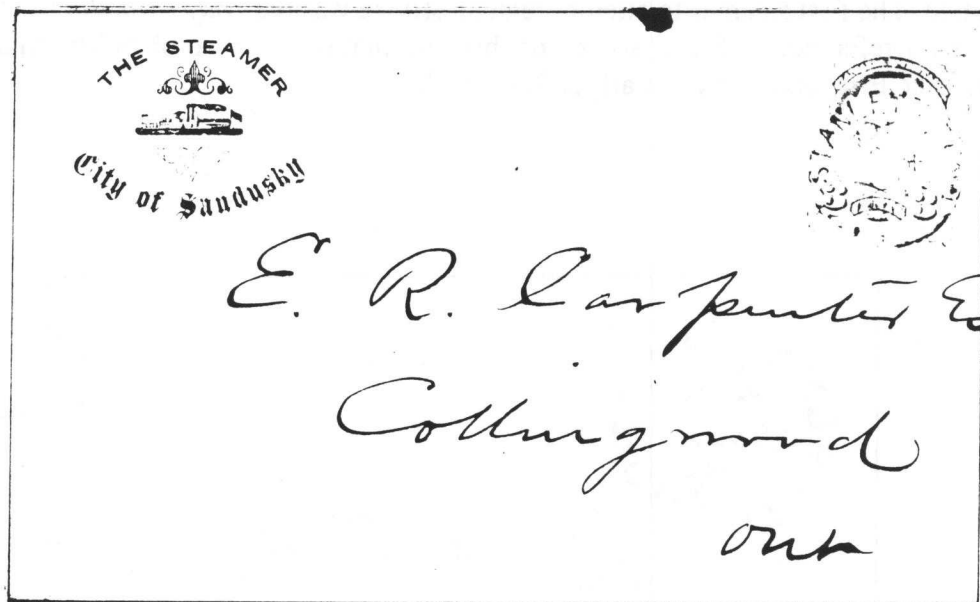 THE STEAMER
City of Sandusky
E. R. Carpenter Es
Collingwood
Ont